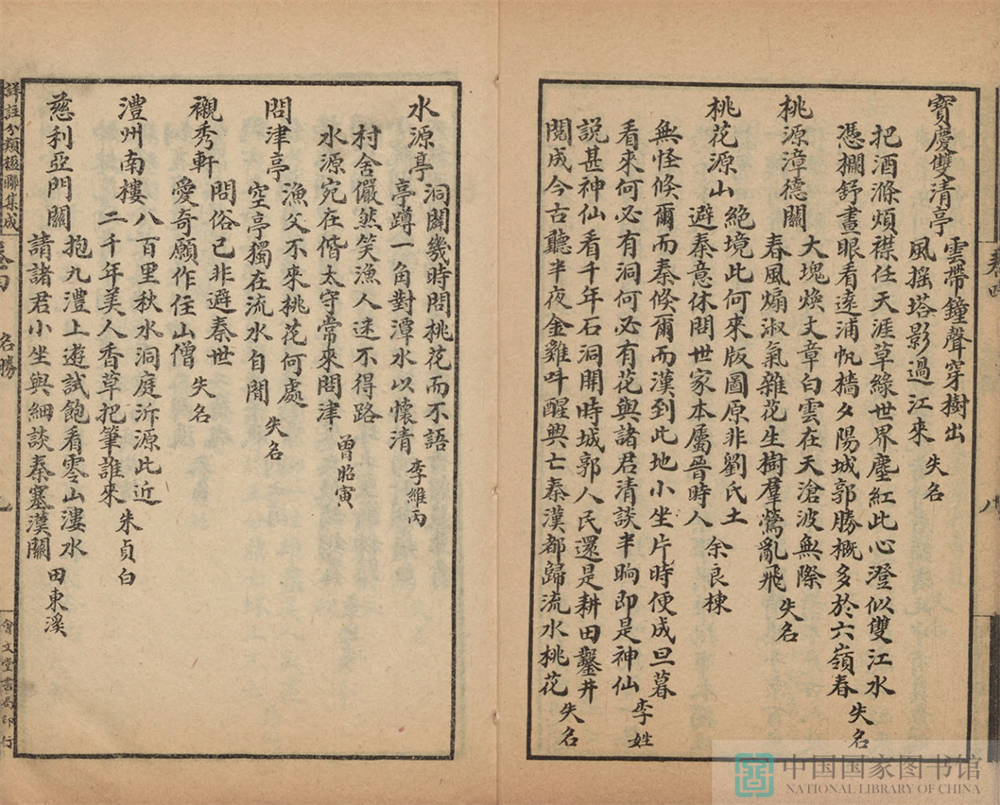 寶慶雙清亭
雲帶鐘聲穿樹出
風搖塔影過江來 失名
把酒滌煩襟任天涯草綠世界塵紅此心澄似雙江水
憑攔舒晝眼看遠浦帆檣夕陽城郭勝概多於六嶺春 失名
桃源漳德關
大塊煥文章白雲在天滄波無際
春風煽淑氣雜花生樹羣鶯亂飛 失名
桃花源山
絕境此何來版圖原非劉氏土
避秦意休問世家本屬晉時人 余良棟
無怪倏爾而秦倏爾而漢到此地小坐片時便成旦暮
看來何必有洞何必有花與諸君清談半晌即是神仙 李姓
說甚神仙看千年石洞開時城郭人民還是耕田鑿井
閱成今古聽半夜金雞叫醒興亡秦漢都歸流水桃花 失名
水源亭
洞闢幾時問桃花而不語
亭蹲一角對潭水以懷清 李維丙
村舍儼然笑漁人迷不得路
水源宛在偕太守常來問津 曾昭寅
問津亭
漁父不來桃花何處
空亭獨在流水自閒 失名
襯秀軒
問俗已非避秦世
愛奇願作住山僧 失名
澧州南樓
八百里秋水洞庭泝源此近
二千年美人香草把筆誰來 朱貞白
慈利亞門關
抱九澧上遊試飽看零山漊水
請諸君小坐與細談秦塞漢關 田東溪
詳註分類楹聯集成
名勝
會文堂書局印行
中国国家图书馆
NATIONAL LIBRARY OF CHINA